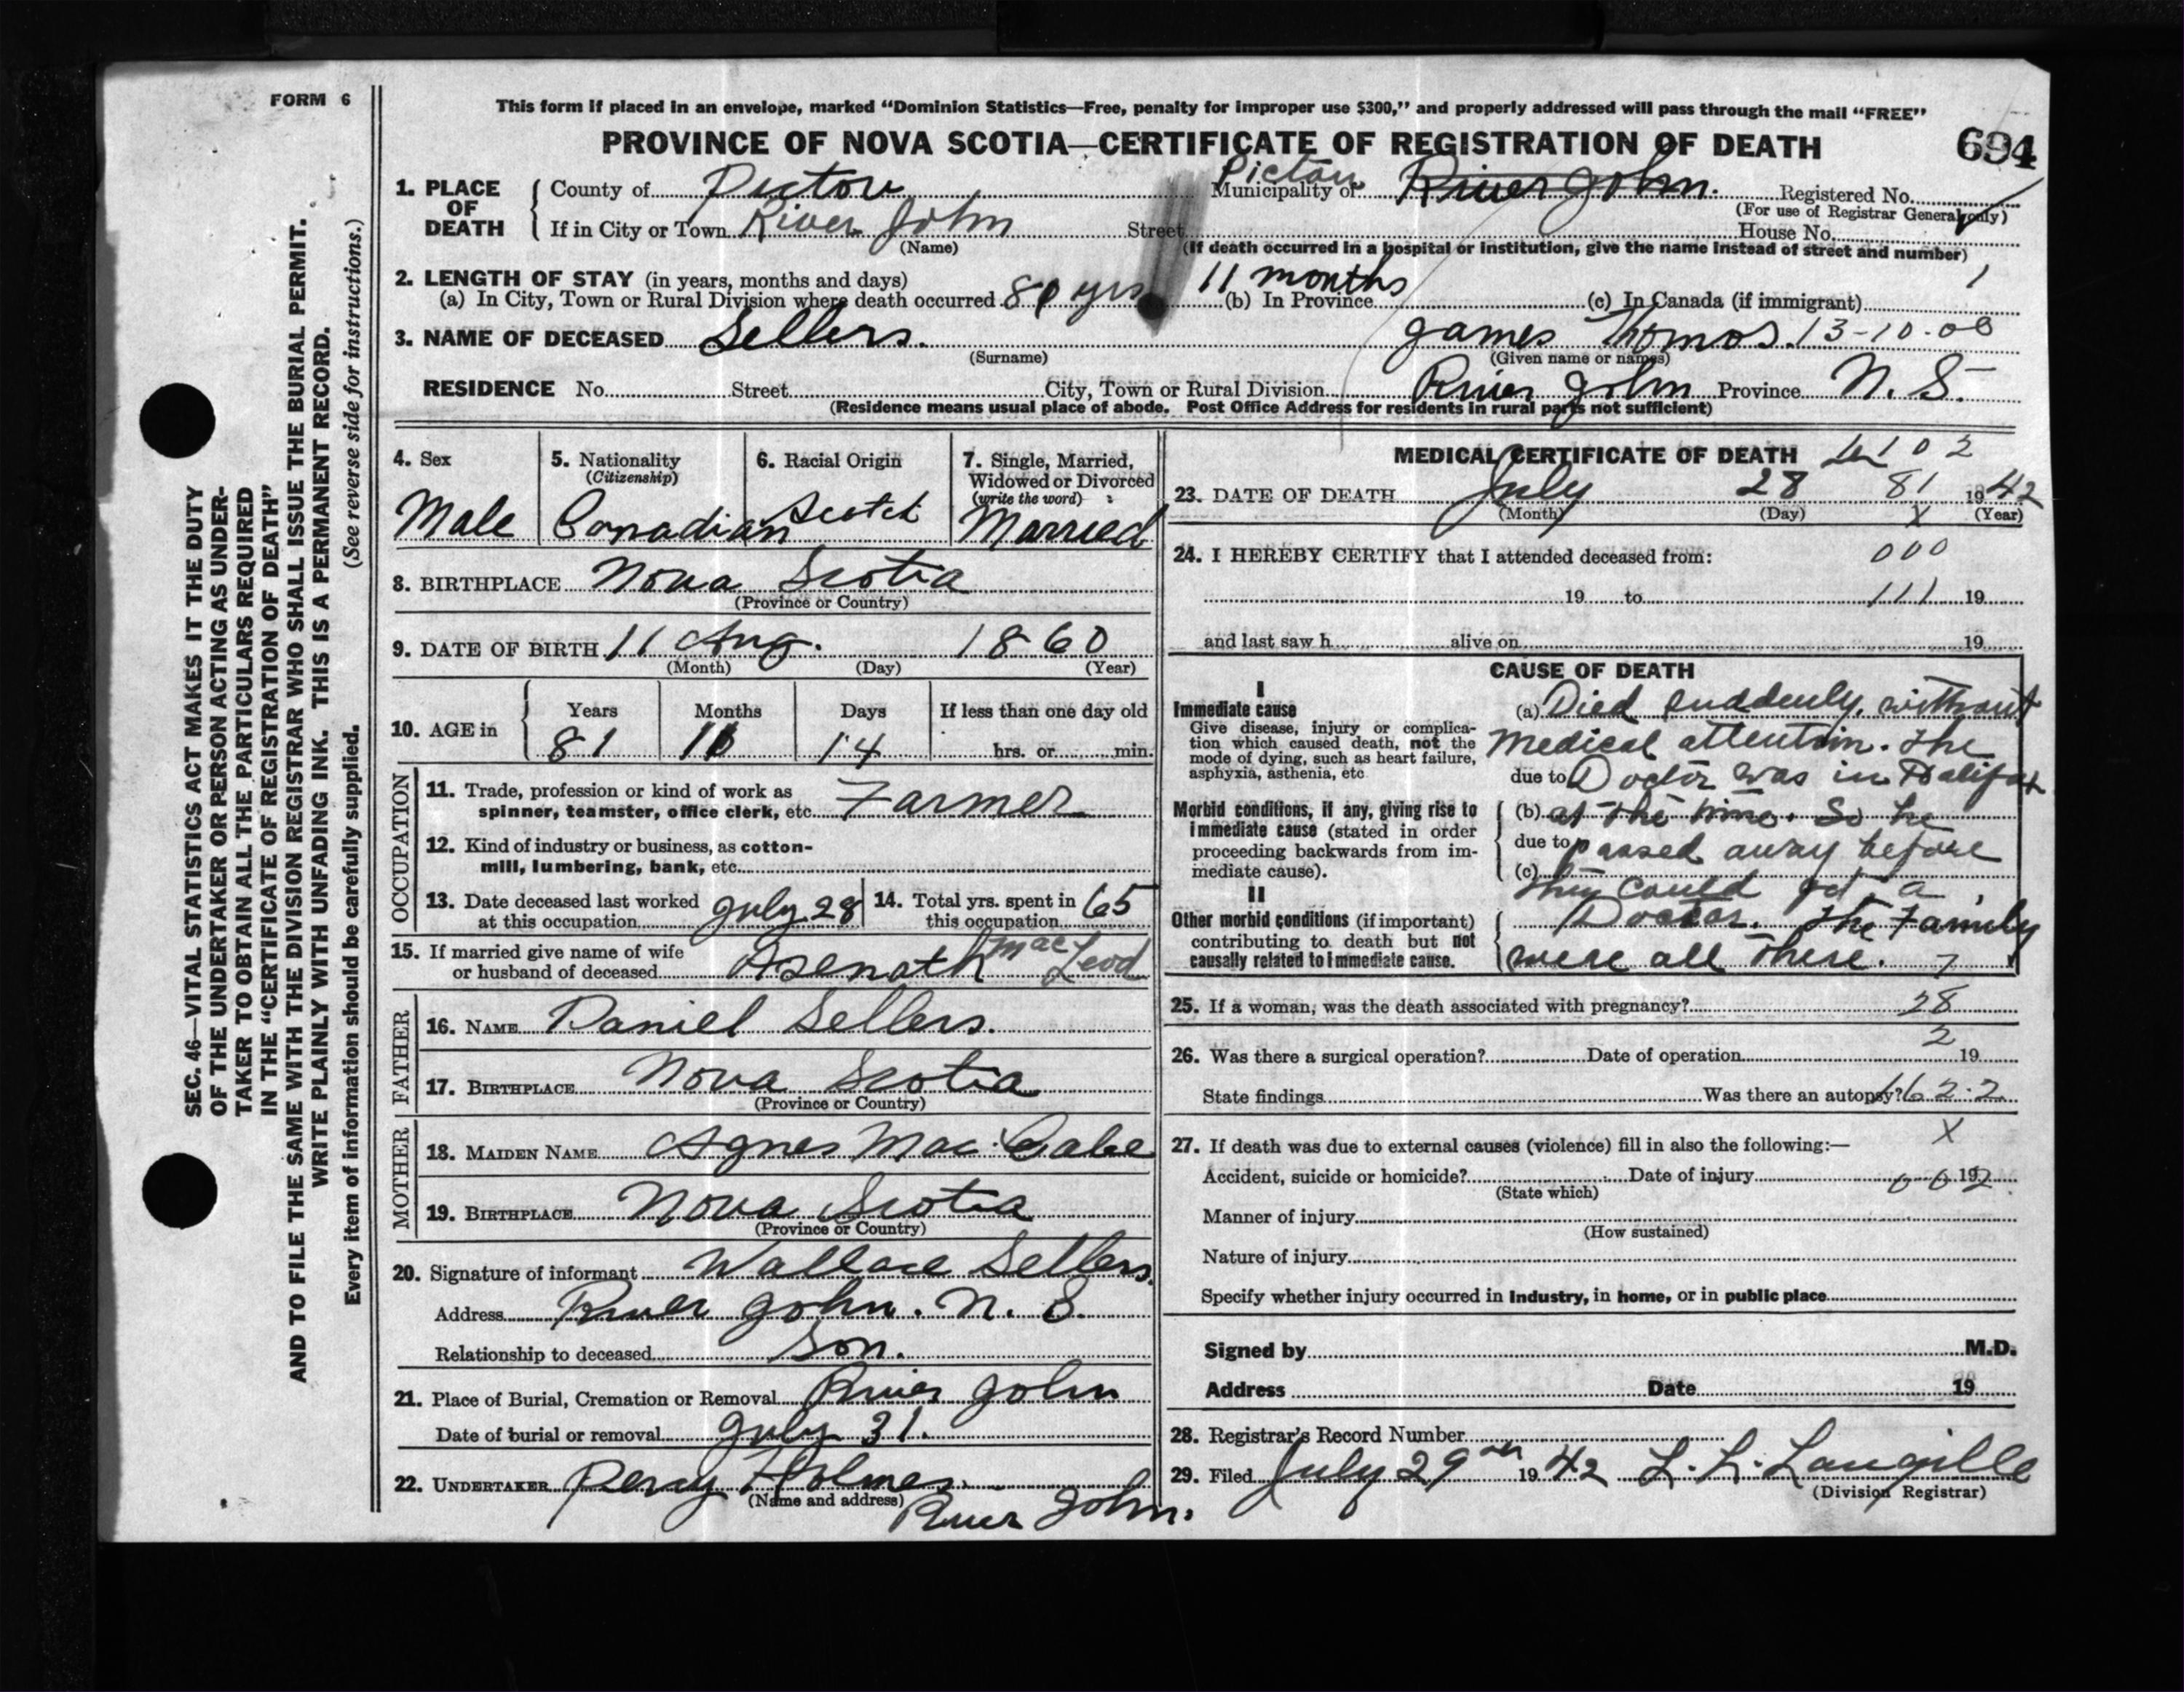 FORM 6
This form if placed in an envelope, marked “Dominion Statistics—Free, penalty for improper use $300,” and properly addressed will pass through the mail “FREE”
PROVINCE OF NOVA SCOTIA—CERTIFICATE OF REGISTRATION OF DEATH
694
1. PLACE OF DEATH
County of Pictou Municipality of Pictou River John. Registered No.
(For use of Registrar General only)
If in City or Town River John Street House No.
(Name) (If death occurred in a hospital or institution, give the name instead of street and number)
2. LENGTH OF STAY (in years, months and days)
(a) In City, Town or Rural Division where death occurred 81 yrs 11 months (b) In Province (c) In Canada (if immigrant) 1
3. NAME OF DECEASED Sellers. James Thomas. 13-10-00
(Surname) (Given name or names)
RESIDENCE No. Street City, Town or Rural Division River John Province N. S.
(Residence means usual place of abode. Post Office Address for residents in rural parts not sufficient)
4. Sex
Male
5. Nationality
(Citizenship)
Canadian
6. Racial Origin
Scotch
7. Single, Married, Widowed or Divorced
(write the word)
Married
8. BIRTHPLACE Nova Scotia
(Province or Country)
9. DATE OF BIRTH 11 Aug. 1860
(Month) (Day) (Year)
10. AGE in Years Months Days If less than one day old
81 11 14 hrs. or min.
OCCUPATION
11. Trade, profession or kind of work as
spinner, teamster, office clerk, etc. Farmer
12. Kind of industry or business, as cotton-
mill, lumbering, bank, etc.
13. Date deceased last worked
at this occupation July 28
14. Total yrs. spent in
this occupation 65
15. If married give name of wife
or husband of deceased Asenath MacLeod
FATHER
16. NAME Daniel Sellers.
17. BIRTHPLACE Nova Scotia
(Province or Country)
MOTHER
18. MAIDEN NAME Agnes Mac Cabe
19. BIRTHPLACE Nova Scotia
(Province or Country)
20. Signature of informant Wallace Sellers.
Address River John. N. S.
Relationship to deceased Son.
21. Place of Burial, Cremation or Removal River John
Date of burial or removal July 31.
22. UNDERTAKER Percy Holmes.
(Name and address) River John.
MEDICAL CERTIFICATE OF DEATH 102
23. DATE OF DEATH July 28 81 1942
(Month) (Day) X (Year)
24. I HEREBY CERTIFY that I attended deceased from: 000
19 to 111 19
and last saw h alive on 19
CAUSE OF DEATH
I
Immediate cause
Give disease, injury or complica-
tion which caused death, not the
mode of dying, such as heart failure,
asphyxia, asthenia, etc
Morbid conditions, if any, giving rise to
immediate cause (stated in order
proceeding backwards from im-
mediate cause).
II
Other morbid conditions (if important)
contributing to death but not
causally related to immediate cause.
(a) Died suddenly, without
medical attention. The
due to Doctor was in Halifax
(b) at the time. So he
due to passed away before
(c) they could get a
Doctor. The Family
were all there. 7
25. If a woman, was the death associated with pregnancy? 28
26. Was there a surgical operation? Date of operation 2 19
State findings Was there an autopsy? 162.2
27. If death was due to external causes (violence) fill in also the following:— X
Accident, suicide or homicide? Date of injury 19
(State which)
Manner of injury
(How sustained)
Nature of injury
Specify whether injury occurred in Industry, in home, or in public place
Signed by M.D.
Address Date 19
28. Registrar’s Record Number
29. Filed July 29th 1942 L. L. Langille
(Division Registrar)
SEC. 46—VITAL STATISTICS ACT MAKES IT THE DUTY
OF THE UNDERTAKER OR PERSON ACTING AS UNDER-
TAKER TO OBTAIN ALL THE PARTICULARS REQUIRED
IN THE “CERTIFICATE OF REGISTRATION OF DEATH”
AND TO FILE THE SAME WITH THE DIVISION REGISTRAR WHO SHALL ISSUE THE BURIAL PERMIT.
WRITE PLAINLY WITH UNFADING INK. THIS IS A PERMANENT RECORD.
Every item of information should be carefully supplied. (See reverse side for instructions.)